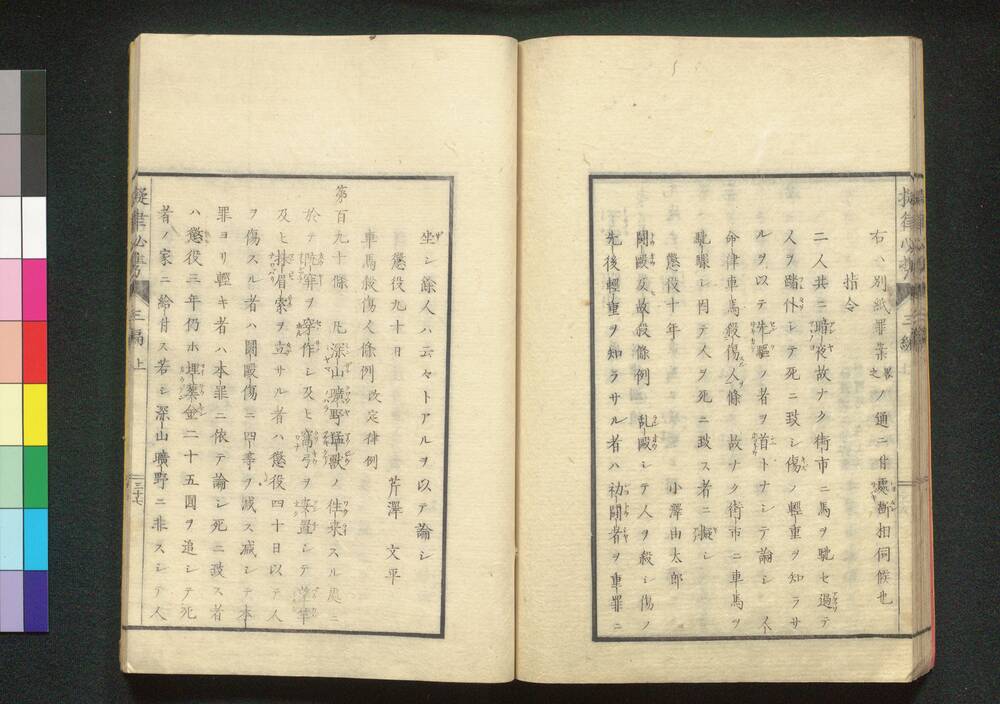 右ハ別紙罪案之通ニ付處斷相伺候也
指令
二人共ニ暗夜故ナク街市ニ馬ヲ馳セ過テ
人ヲ踏仆シテ死ニ致シ傷ノ輕重ヲ知ラサ
ルヲ以テ先驅ノ者ヲ首トナシテ論シ
命律車馬殺傷人條 故ナク街市ニ車馬ヲ
馳驟シ因テ人ヲ死ニ致ス者ニ擬シ
懲役十年 小澤由太郎
鬪毆及故殺條例 亂毆シテ人ヲ殺シ傷ノ
先後輕重ヲ知ラサル者ハ初鬪者ヲ重罪ニ
坐シ餘人ハ云々トアルヲ以テ論シ
懲役九十日 芹澤文平
車馬殺傷人條例 改定律例
第百九十條 凡深山曠野猛獸ノ往来スル處ニ
於テ阬穽ヲ穿作シ及ヒ窩弓ヲ安置シテ望竿
及ヒ抹眉索ヲ立サル者ハ懲役四十日以テ人
ヲ傷スル者ハ鬪毆傷ニ四等ヲ減ス減シテ本
罪ヨリ輕キ者ハ本罪ニ依テ論シ死ニ致ス者
ハ懲役三年仍ホ埋葬金二十五圓ヲ追シテ死
者ノ家ニ給付ス若シ深山曠野ニ非スシテ人
擬律必携 三編 上
三十七